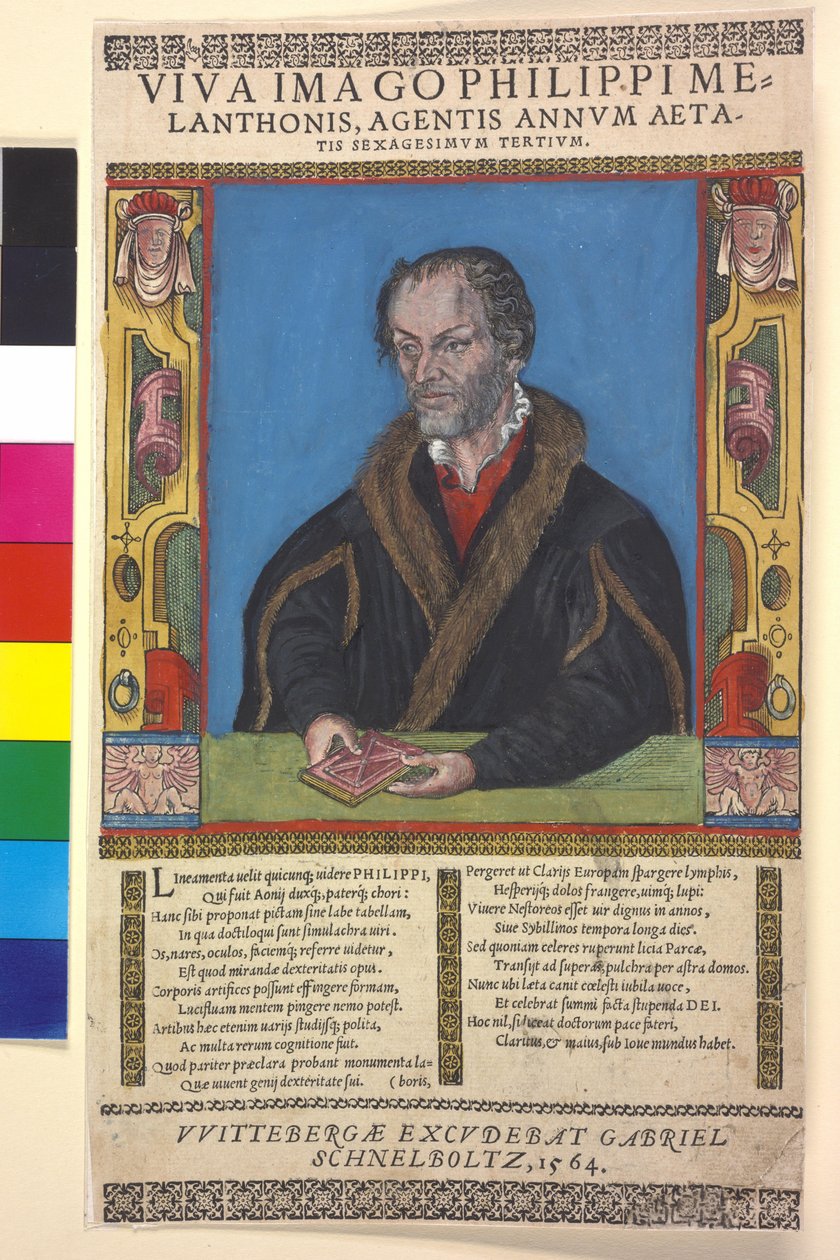 VIVA IMAGO PHILIPPI ME=
LANTHONIS, AGENTIS ANNVM AETA-
TIS SEXAGESIMVM TERTIVM.
Lineamenta uelit quicunq; uidere PHILIPPI,
Qui fuit Aonij duxq;, paterq; chori:
Hanc sibi proponat pictam sine labe tabellam,
In qua doctiloqui sunt simulachra uiri.
Os, nares, oculos, faciemq; referre uidetur,
Est quod mirandæ dexteritatis opus.
Corporis artifices possunt effingere formam,
Lucifluam mentem pingere nemo potest.
Artibus hæc etenim uarijs studijsq; polita,
Ac multa rerum cognitione fuit.
Quod pariter præclara probant monumenta la=
Quæ uiuent genij dexteritate sui. (boris,
Pergeret ut Clarijs Europam spargere lymphis,
Hesperijq; dolos frangere, uimq; lupi:
Viuere Nestoreos esset uir dignus in annos,
Siue Sybillinos tempora longa dies.
Sed quoniam celeres ruperunt licia Parcæ,
Transijt ad superas, pulchra per astra domos.
Nunc ubi læta canit cœlesti iubila uoce,
Et celebrat summi facta stupenda DEI.
Hoc nil, si liceat doctorum pace fateri,
Clarius, & maius, sub Ioue mundus habet.
VVITTEBERGÆ EXCVDEBAT GABRIEL
SCHNELBOLTZ, 1564.